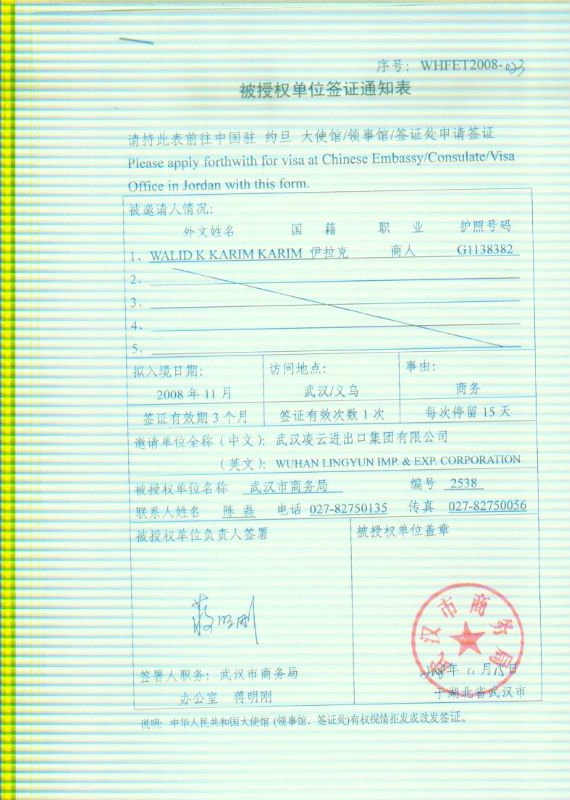 序号: WHFET2008-023
被授权单位签证通知表
请持此表前往中国驻 约旦 大使馆/领事馆/签证处申请签证
Please apply forthwith for visa at Chinese Embassy/Consulate/Visa
Office in Jordan with this form.
被邀请人情况:
外文姓名 国籍 职业 护照号码
1、WALID K KARIM KARIM 伊拉克 商人 G1138382
2、
3、
4、
5、
拟入境日期: 访问地点: 事由:
2008 年 11 月 武汉/义乌 商务
签证有效期 3 个月 签证有效次数 1 次 每次停留 15 天
邀请单位全称 (中文): 武汉凌云进出口集团有限公司
(英文): WUHAN LINGYUN IMP. & EXP. CORPORATION
被授权单位名称 武汉市商务局 编号 2538
联系人姓名 陈 电话 027-82750135 传真 027-82750056
被授权单位负责人签署 被授权单位盖章
蒋明刚
武汉市商务局
签署人职务: 武汉市商务局 年 11 月 日
办公室 蒋明刚 于湖北省武汉市
说明: 中华人民共和国大使馆 (领事馆、签证处)有权视情拒发或改发签证。